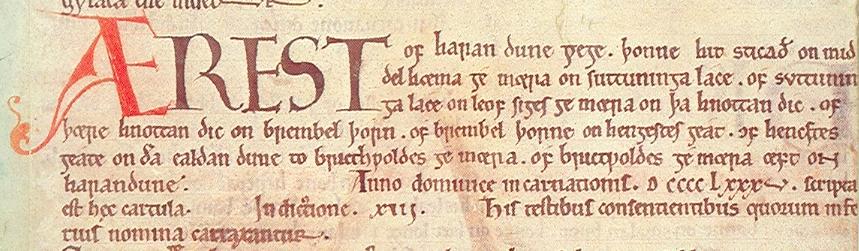 ÆREST of haran dune gege. þonne hit sticað on mid
del hæma ge mæra on suttuninga lace. of suttunin
ga lace on leof siges ge mæra on þa knottan dic. of
þære knottan dic on brembel þorn. of brembel þorne on hengestes geat. of hencstes
geate on ða ealdan dune to ge mæra. of ge mæra æft on
harandune. Anno dominicæ incarnationis. D cccc Lxxxv. scripta
est hec cartula. Indictione. xiii. His testibus consentientibus quorum infe
rius nomina caraxantur.